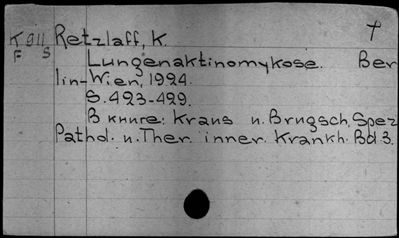 К 911 Retzlaff, K. †
F S Lungenaktinomykose. Ber
lin-Wien, 1924.
S. 423-429.
В книге: Kraus u. Brugsch, Spez
Pathol. u. Ther. inner. Krankh. Bd 3.